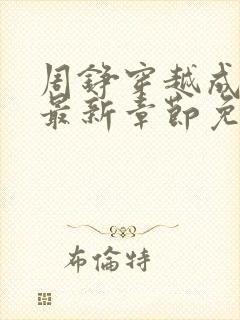 周铮穿越成
最新章节免
布倫特